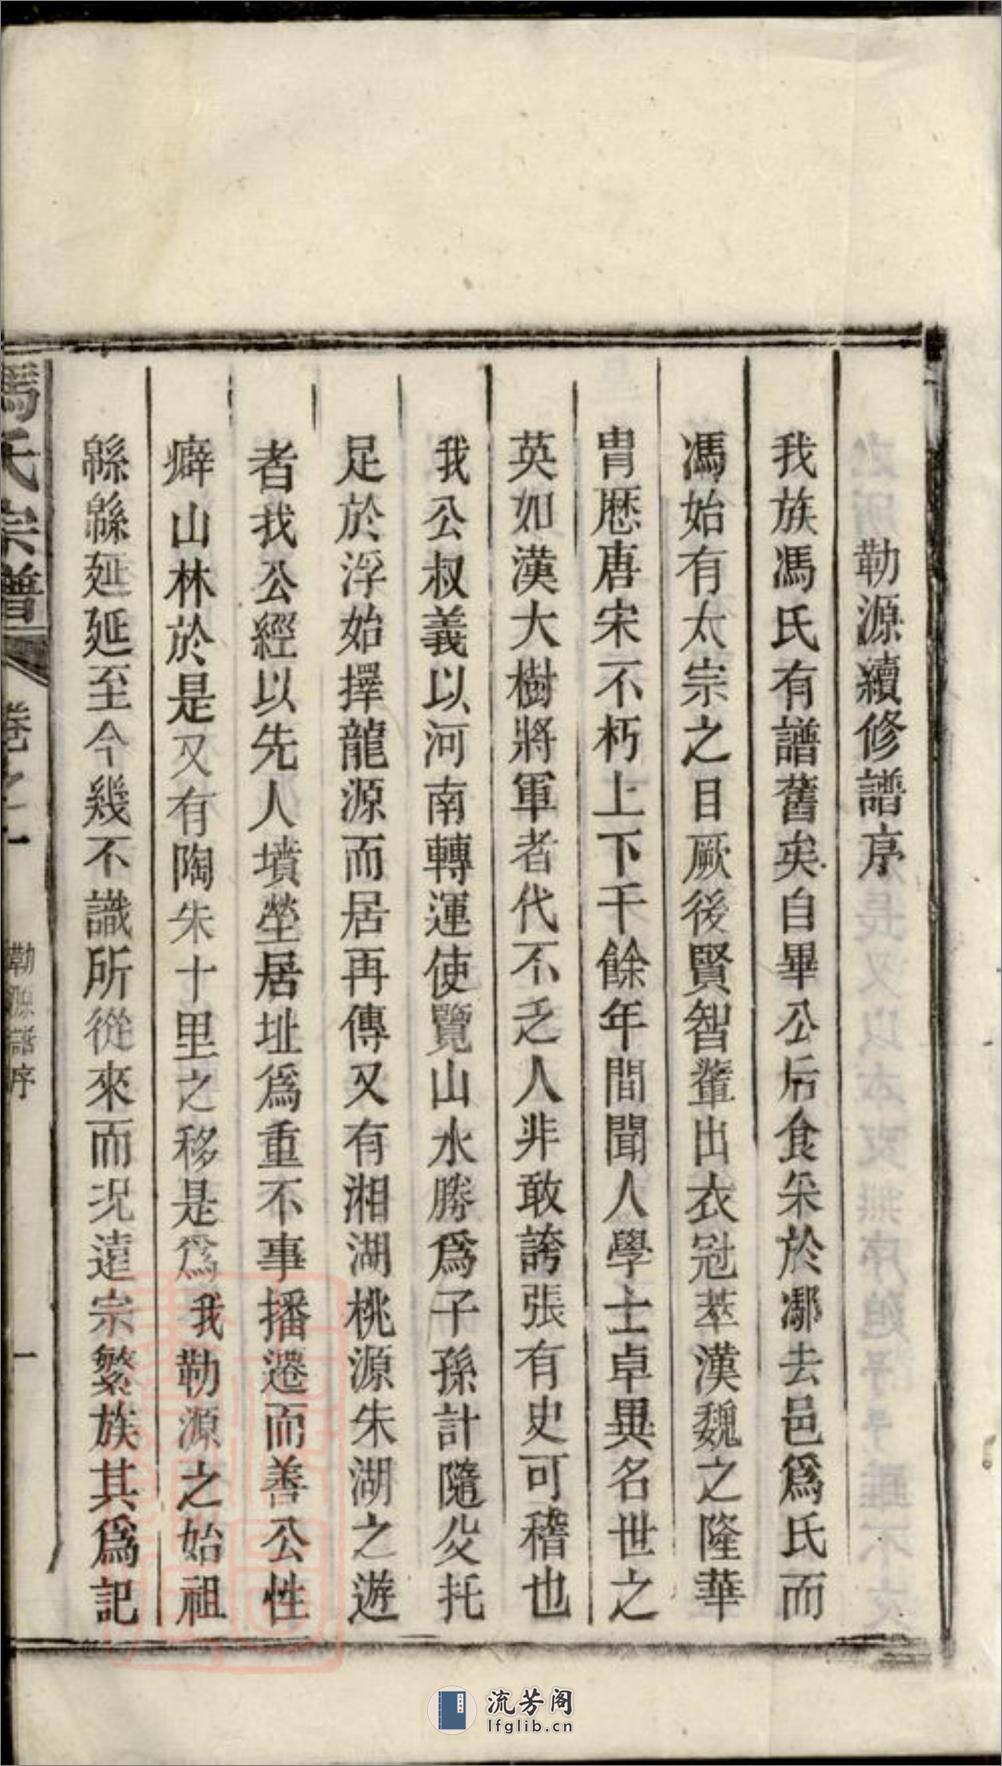 勒源續修譜序
我族馮氏有譜舊矣自畢公后食采於鄘去邑爲氏而
馮始有太宗之目厥後賢智輩出衣冠萃漢魏之隆華
胄歷唐宋不朽上下千餘年間聞人學士卓異名世之
英如漢大樹將軍者代不乏人非敢誇張有史可稽也
我公叔義以河南轉運使覽山水勝爲子孫計隨父托
足於浮始擇龍源而居再傳又有湘湖桃源朱湖之遊
者我公經以先人墳塋居址爲重不事播遷而善公性
癖山林於是又有陶朱十里之移是爲我勒源之始祖
緜緜延延至今幾不識所從來而況遠宗繁族其爲記
馮氏宗譜
卷之一
勒源譜序
一
流芳阁
lfglib.cn